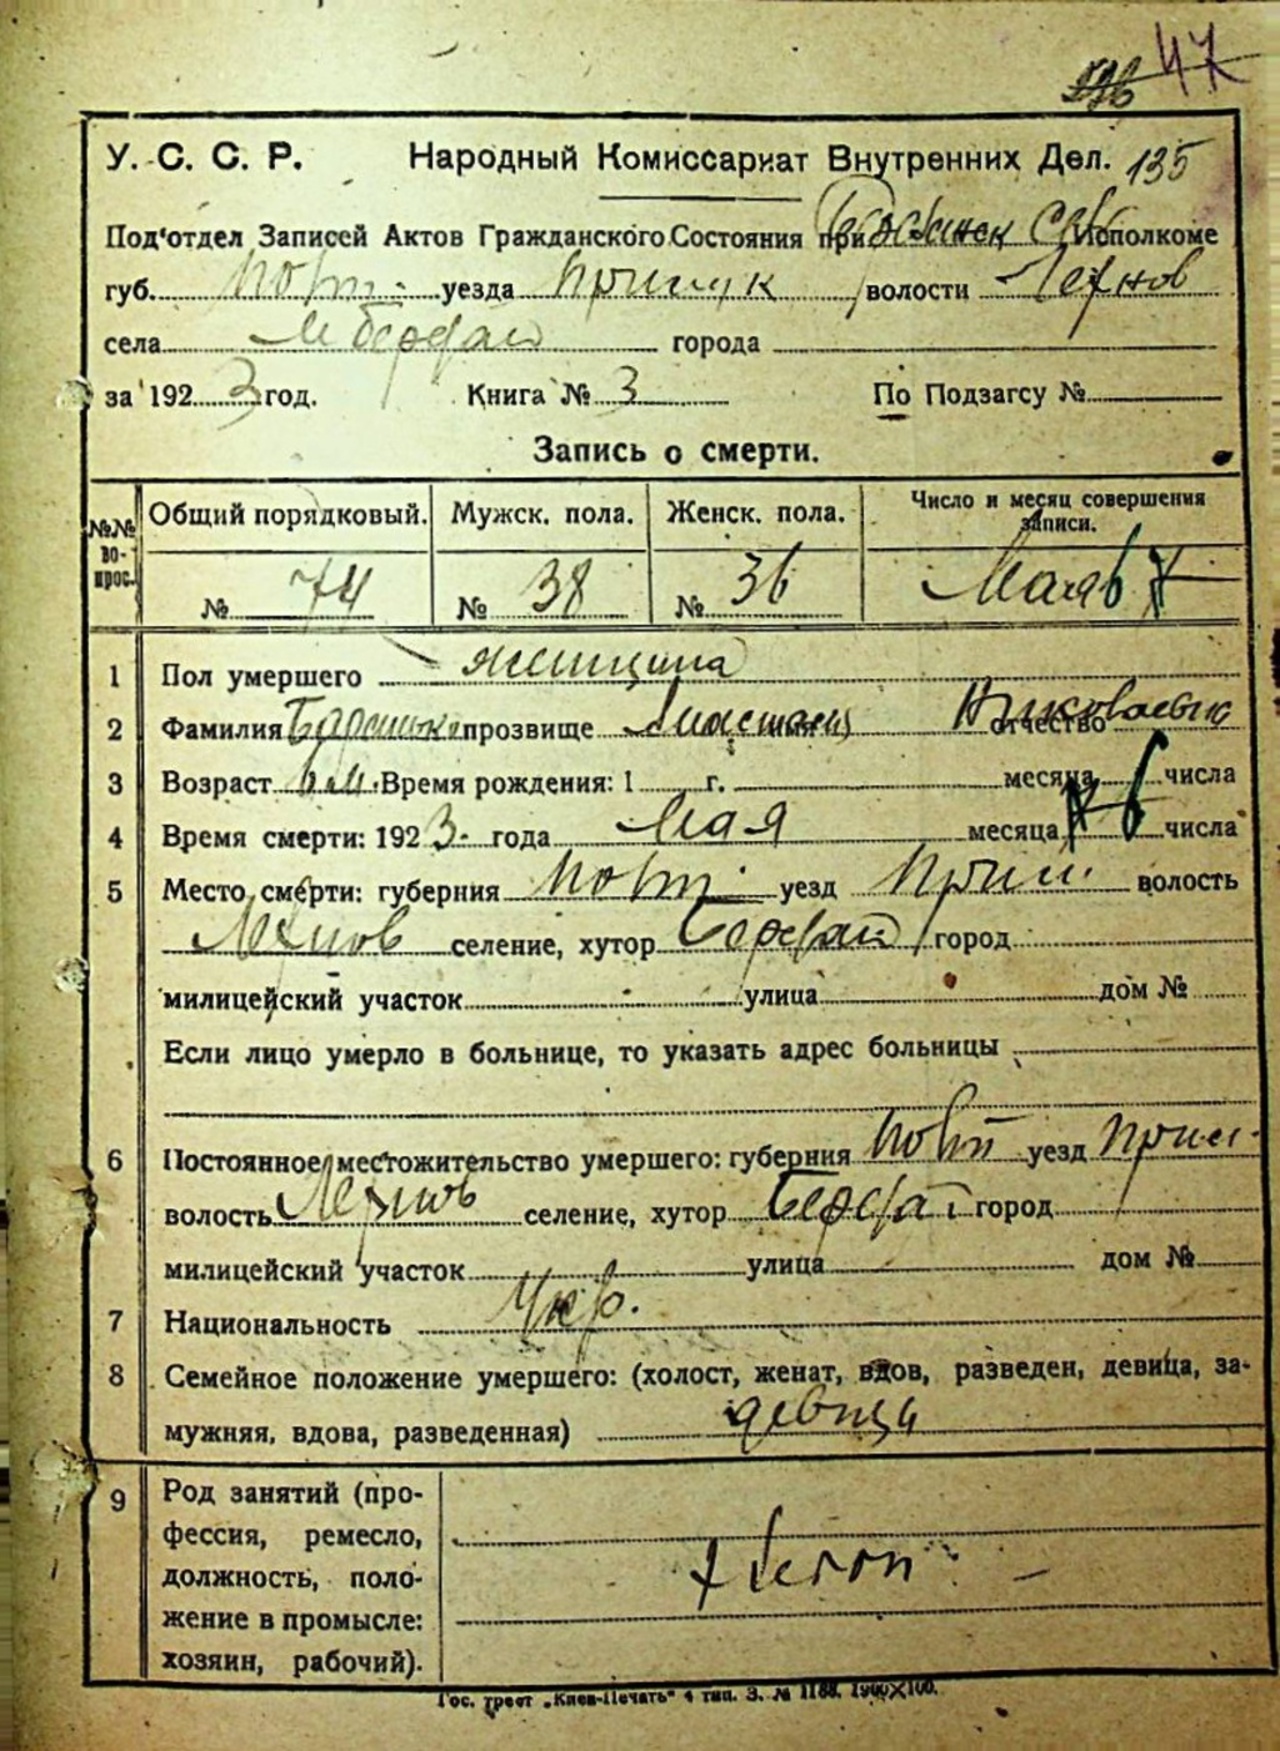 47
У. С. С. Р. Народный Комиссариат Внутренних Дел. 135
Под'отдел Записей Актов Гражданского Состояния при Исполкоме
губ. Полт. уезда Прилук волости Лехнов
села города
за 1923 год. Книга № 3 По Подзагсу №
Запись о смерти.
№№ вопрос. Общий порядковый. Мужск. пола. Женск. пола. Число и месяц совершения записи.
№ 74 № 38 № 36 Мая 6
1 Пол умершего женщина
2 Фамилия прозвище Анастасия отчество Николаевна
3 Возраст Время рождения: 1 г. месяца числа
4 Время смерти: 1923. года Мая месяца 6 числа
5 Место смерти: губерния Полт. уезд Прил. волость
Лехнов селение, хутор город
милицейский участок улица дом №
Если лицо умерло в больнице, то указать адрес больницы
6 Постоянное местожительство умершего: губерния Полт уезд Прил.
волость Лехнов селение, хутор город
милицейский участок улица дом №
7 Национальность Укр.
8 Семейное положение умершего: (холост, женат, вдов, разведен, девица, за-
мужняя, вдова, разведенная) девица
9 Род занятий (про-
фессия, ремесло,
должность, поло-
жение в промысле:
хозяин, рабочий).
Гос. трест „Киев-Печать" 4 тип. З. № 1188.